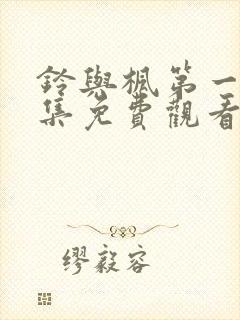 鈴與楓第一
集免費觀看
繆毅容